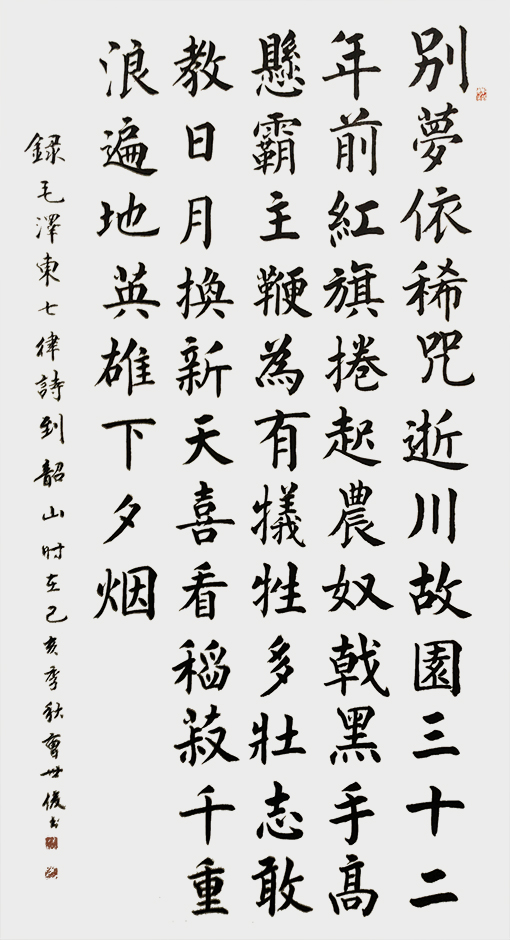 别夢依稀咒逝川故園三十二
年前紅旗捲起農奴戟黑手高
懸霸主鞭為有犠牲多壯志敢
教日月換新天喜看稻菽千重
浪遍地英雄下夕烟
錄毛澤東七律詩到韶山时在己亥季秋世俊书